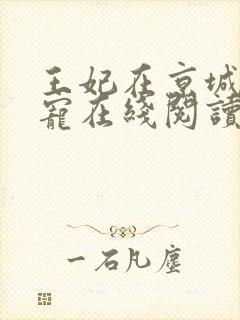 王妃在京城
寵在綫閱讀
一石凡塵